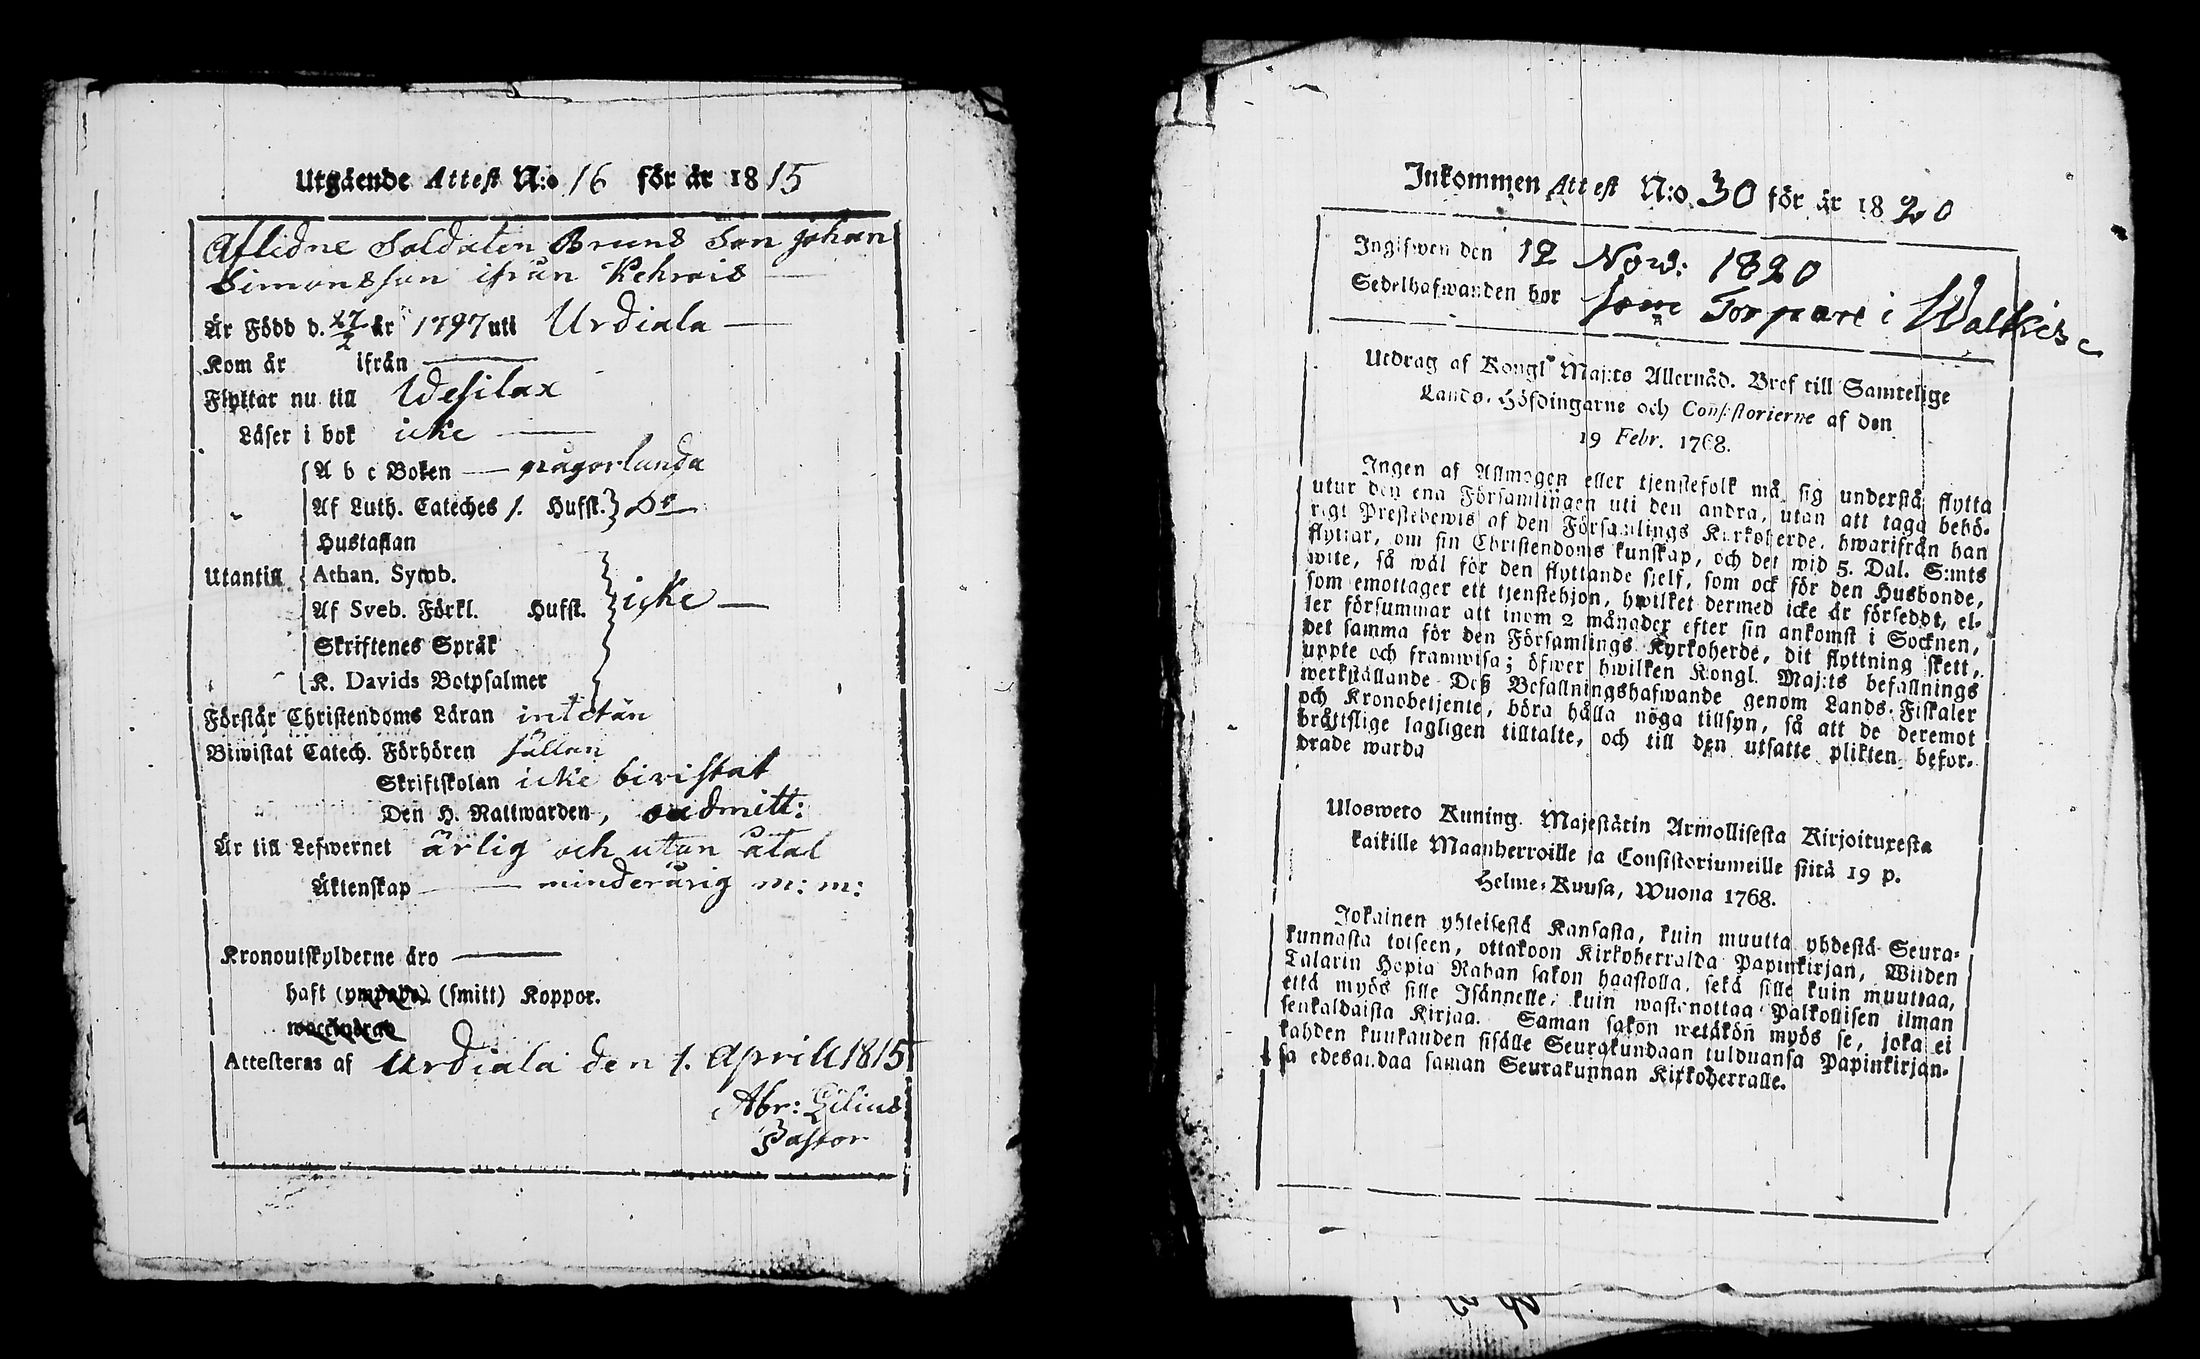 Utgående Attest N:o 16 för år 1815
Aflidne Soldaten Bruns Son Johan
Simonsson ifrån Kehrois
Är Född d. 27/2 år 1797 uti Urdiala
Kom år ifrån
Flyttar nu till Wesilax
Läser i bok icke
A b c Boken någorlunda
Af Luth. Cateches 1. Hufst. Do
Hustaflan
Utantill Athan. Symb.
Af Sveb. Förkl. Hufst. icke
Skriftenes Språk
K. Davids Botpsalmer
Förstår Christendoms Läran intet än
Biwistat Catech. Förhören sällan
Skriftskolan icke bivistat
Den H. Nattwarden, oadmitt:
Är till Lefwernet ärlig och utan åtal
Äktenskap minderårig m: m:
Kronoutskylderne äro
haft (ympade) (smitt) Koppor.
Attesteras af Urdiala den 1. Aprill 1815
Abr: Gilius
Pastor
Inkommen Attest N:o 30 för år 1820
Ingifwen den 12 Nov: 1820
Sedelhafwanden bor som Torpare i
Utdrag af Kongl. Maj:ts Allernåd. Bref till Samtelige
Lands-Höfdingarne och Consistorierne af den
19 Febr. 1768.
Ingen af Allmogen eller tjenstefolk må sig understå flytta
utur den ena Församlingen uti den andra, utan att taga behö-
rigt Prestebewis af den Församlings Kyrkoherde, hwarifrån han
flyttar, om sin Christendoms kunskap, och det wid 5. Dal. S:mts
wite, så wäl för den flyttande sjelf, som ock för den Husbonde,
som emottager ett tjenstehjon, hwilket dermed icke är försedt, el-
ler försummar att inom 2 månader efter sin ankomst i Socknen,
det samma för den Församlings Kyrkoherde, dit flyttning skett,
uppte och framwisa; öfwer hwilken Kongl. Maj:ts befallnings
werkställande Deß Befallningshafwande genom Lands-Fiskaler
och Kronobetjente, böra hålla nöga tillsyn, så att de deremot
bråttslige lagligen tilltalte, och till den utsatte plikten befor-
drade warda
Ulosweto Kuning. Majestätin Armollisesta Kirjoituxesta
kaikille Maanherroille ja Consistoriumeille siitä 19 p.
Helme-Kuusa, Wuona 1768.
Jokainen yhteisestä Kansasta, kuin muutta yhdestä Seura-
kunnasta toiseen, ottakoon Kirkoherralda Papinkirjan, Wiiden
Talarin Hopia Rahan sakon haastolla, sekä sille kuin muuttaa,
että myös sille Isännelle, kuin wastanottaa Palkollisen ilman
senkaldaista Kirjaa. Saman sakon wetäkön myös se, joka ei
kahden kuukauden sisälle Seurakundaan tulduansa Papinkirjan-
sa edesandaa saman Seurakunnan Kirkoherralle.